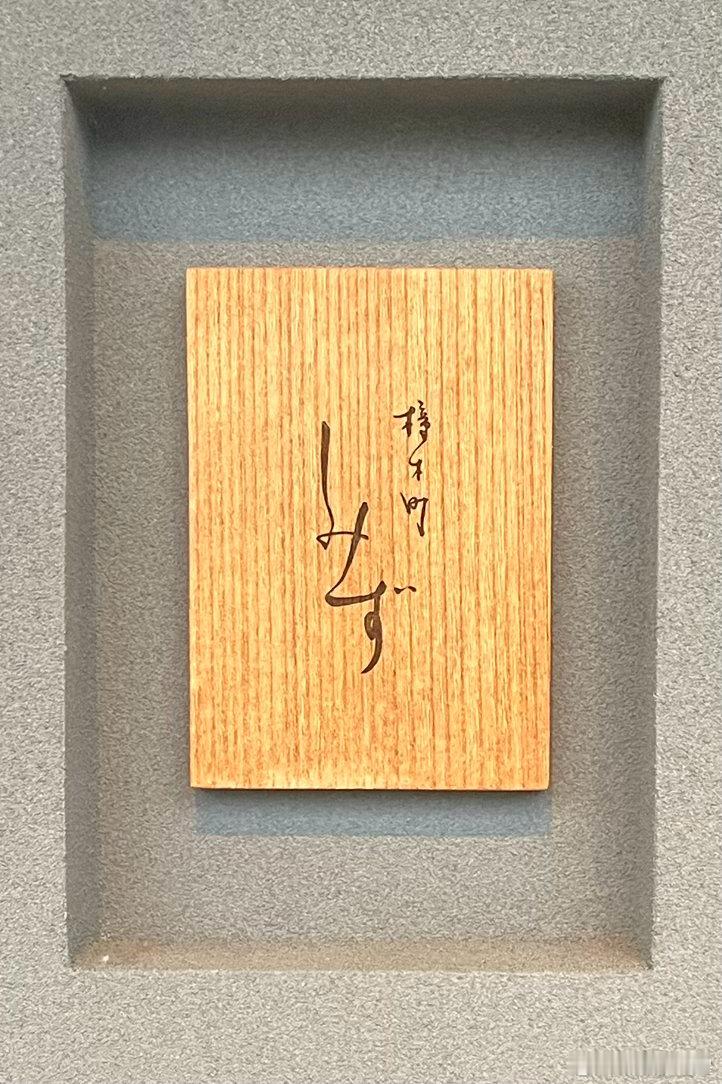 樟木町
しみず